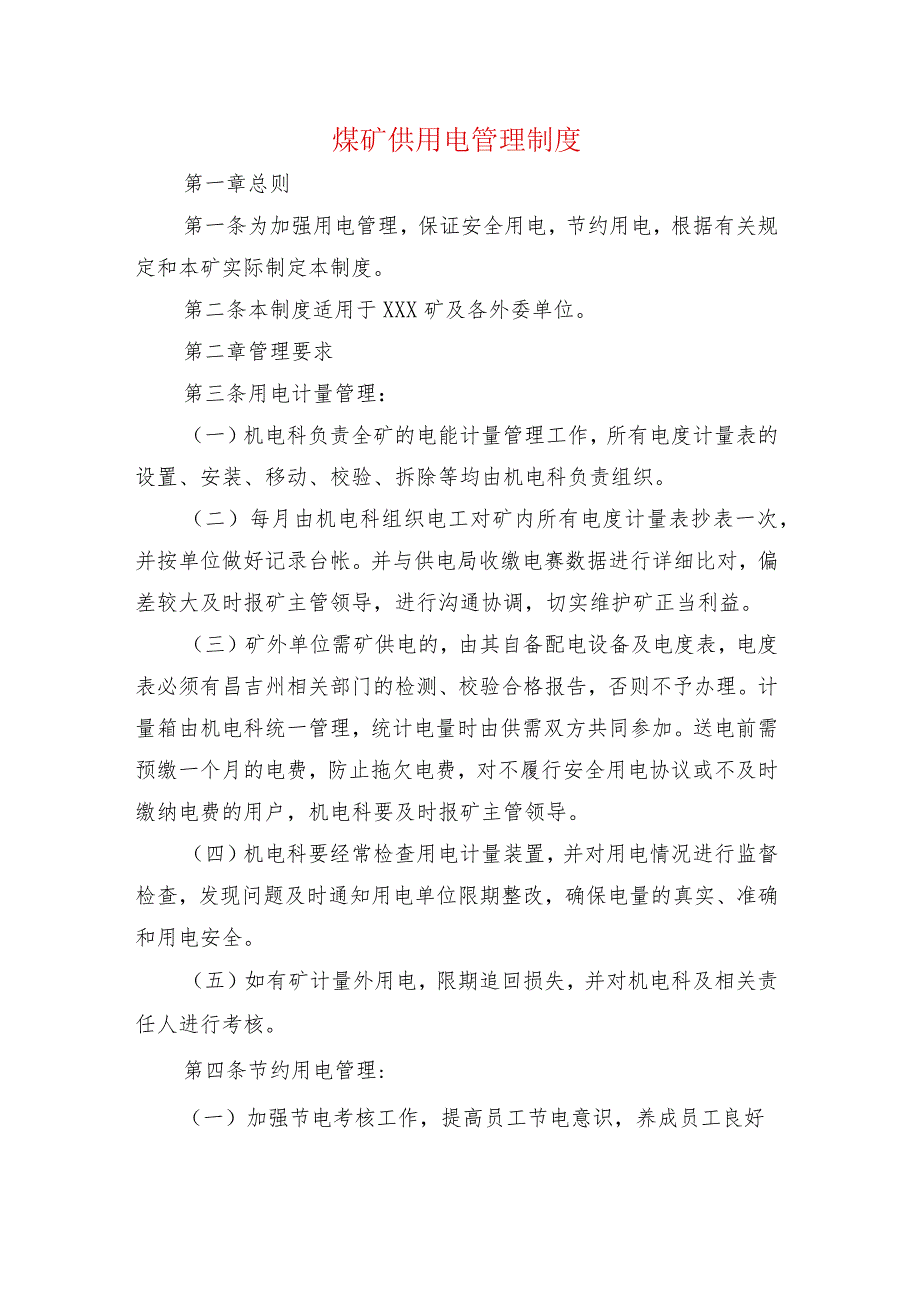 煤矿供用电管理制度
第一章总则
第一条为加强用电管理，保证安全用电，节约用电，根据有关规
定和本矿实际制定本制度。
第二条本制度适用于 XXX 矿及各外委单位。
第二章管理要求
第三条用电计量管理：
（一）机电科负责全矿的电能计量管理工作，所有电度计量表的
设置、安装、移动、校验、拆除等均由机电科负责组织。
（二）每月由机电科组织电工对矿内所有电度计量表抄表一次，
并按单位做好记录台帐。并与供电局收缴电赛数据进行详细比对，偏
差较大及时报矿主管领导，进行沟通协调，切实维护矿正当利益。
（三）矿外单位需矿供电的，由其自备配电设备及电度表，电度
表必须有昌吉州相关部门的检测、校验合格报告，否则不予办理。计
量箱由机电科统一管理，统计电量时由供需双方共同参加。送电前需
预缴一个月的电费，防止拖欠电费，对不履行安全用电协议或不及时
缴纳电费的用户，机电科要及时报矿主管领导。
（四）机电科要经常检查用电计量装置，并对用电情况进行监督
检查，发现问题及时通知用电单位限期整改，确保电量的真实、准确
和用电安全。
（五）如有矿计量外用电，限期追回损失，并对机电科及相关责
任人进行考核。
第四条节约用电管理：
（一）加强节电考核工作，提高员工节电意识，养成员工良好